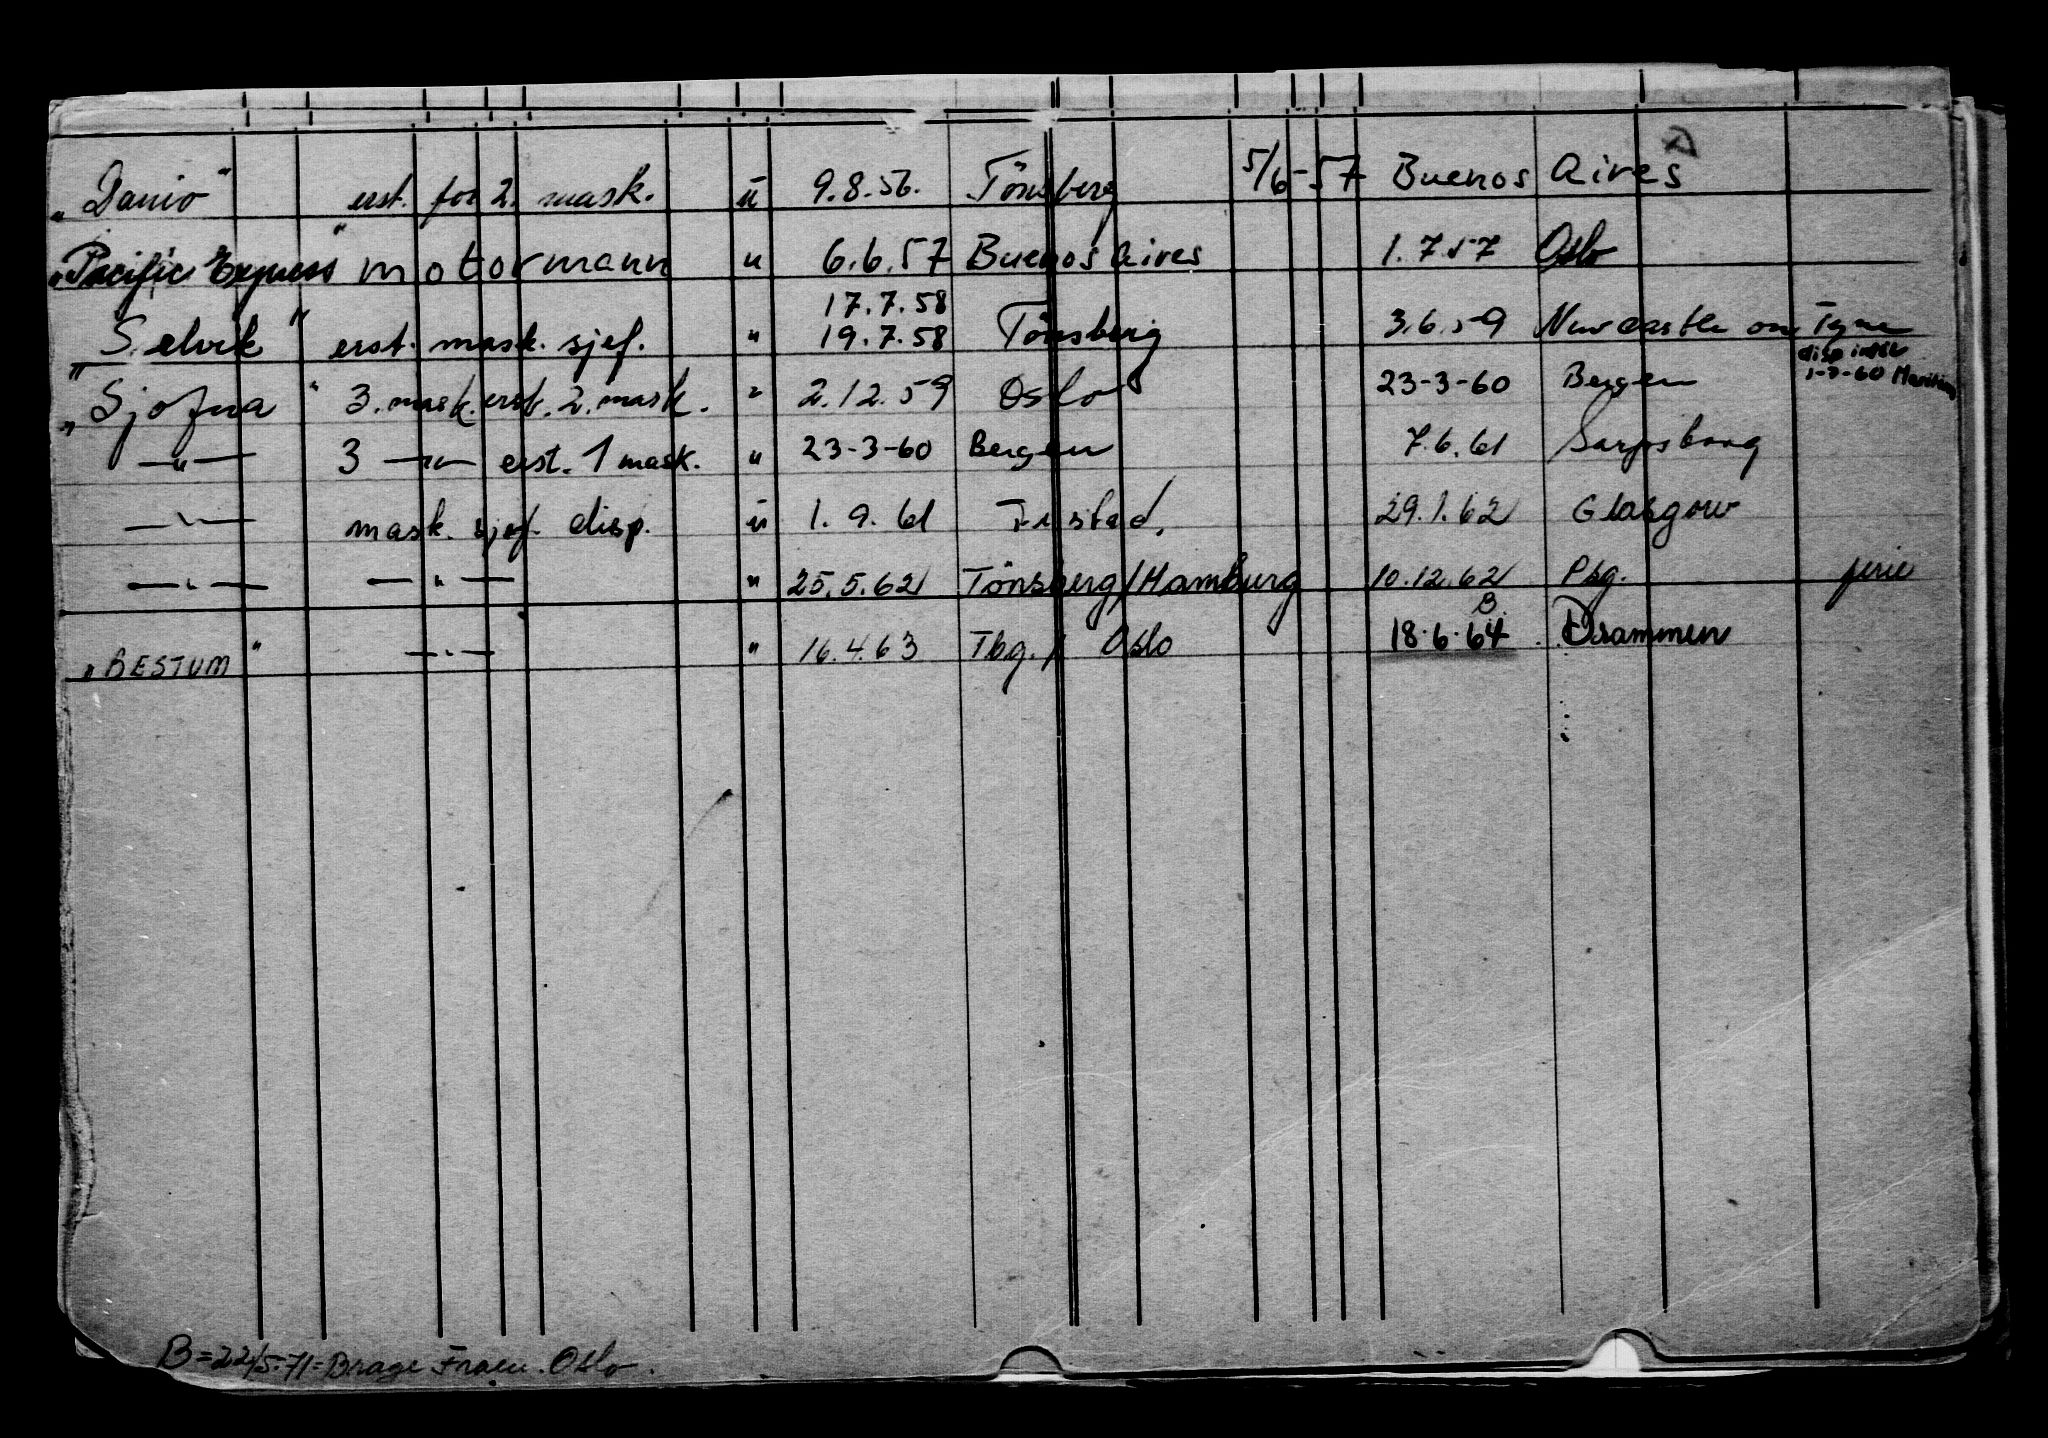 "Danio" erst. for 2. mask. u 9.8.56. Tönsberg 5/6-57 Buenos Aires
"Pacific Express" motormann u 6.6.57 Buenos Aires 1.7.57 Oslo
17.7.58
"Selvik" erst. mask. sjef. " 19.7.58 Tönsberg 3.6.59 Newcastle on Tyne
"Sjofna" 3. mask. erst. 2. mask. " 2.12.59 Oslo 23-3-60 Bergen disp 1-3-60
—"— 3 —"— erst. 1 mask. " 23-3-60 Bergen 7.6.61 Sarpsborg
—"— mask. sjef. disp. u 1.9.61 Fr.stad. 29.1.62 Glasgow
—"— —"— " 25.5.62 Tönsberg/Hamburg 10.12.62 Psg. ferie
B.
"BESTUM" —"— " 16.4.63 Tbg./ Oslo 18.6.64 Drammen
B=22/5-71=Brage Fraen. Oslo.